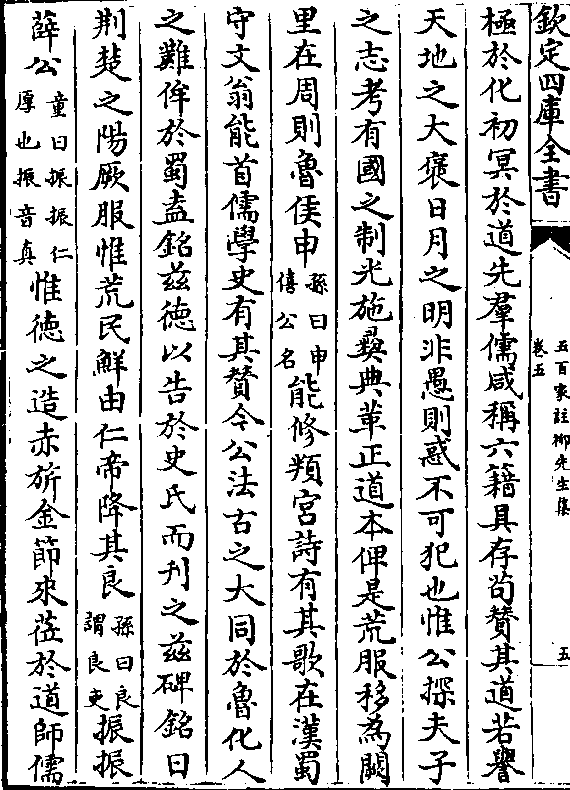 欽定四庫全書
五百家註柳先生集
卷五
五
極於化初冥於道先羣儒咸稱六籍具存苟贊其道若譽
天地之大褒日月之明非愚則惑不可犯也惟公探夫子
之志考有國之制光施彛典革正道本俾是荒服移為闕
里在周則魯侯申孫曰申僖公名能修頖宮詩有其歌在漢蜀
守文翁能首儒學史有其贊今公法古之大同於魯化人
之難侔於蜀盍銘兹徳以告於史氏而刋之兹碑銘曰
荆楚之陽厥服惟荒民鮮由仁帝降其良孫曰良謂良吏振振
薛公童曰振振仁厚也振音真惟徳之造赤旂金節來莅於道師儒